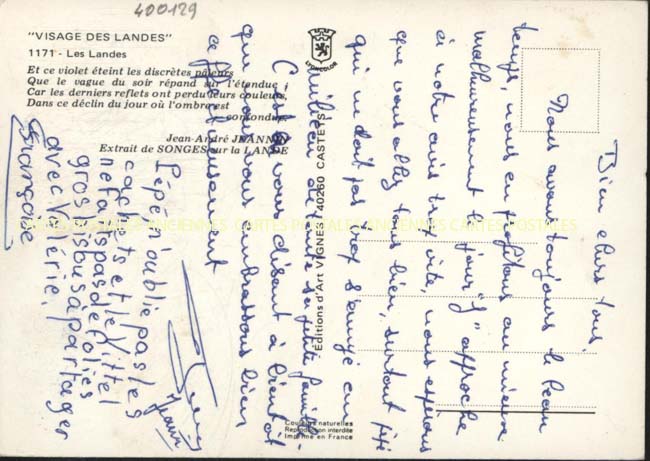 400129
"VISAGE DES LANDES"
1171 - Les Landes
Et ce violet éteint les discrètes pâleurs
Que le vague du soir répand sur l'étendue ;
Car les derniers reflets ont perdu leurs couleurs,
Dans ce déclin du jour où l'ombre est
confondue.
Jean-André JEANNIN
Extrait de SONGES sur la LANDE
LYONCOLOR
Editions d'Art VIGNES - 40260 CASTETS
Couleurs naturelles
Reproduction interdite
Imprimé en France
CARTES POSTALES ANCIENNES CARTES POSTALES ANCIENNES CARTES POSTALES
Bien chers tous,
Nous avons toujours le beau
temps, nous en profitons au mieux
malheureusement le jour "J" approche
à notre avis très vite, nous espérons
que vous allez tous bien, surtout fifi
qui ne doit pas trop s'ennuyer en
milieu de toute sa petite famille
C'est en vous disant à bientôt
que nous vous embrassons bien
affectueusement
Pépé n'oublie pas les
cachets et le Vittel
ne fais pas de folies
gros bisous a partager
avec Valérie.
Françoise